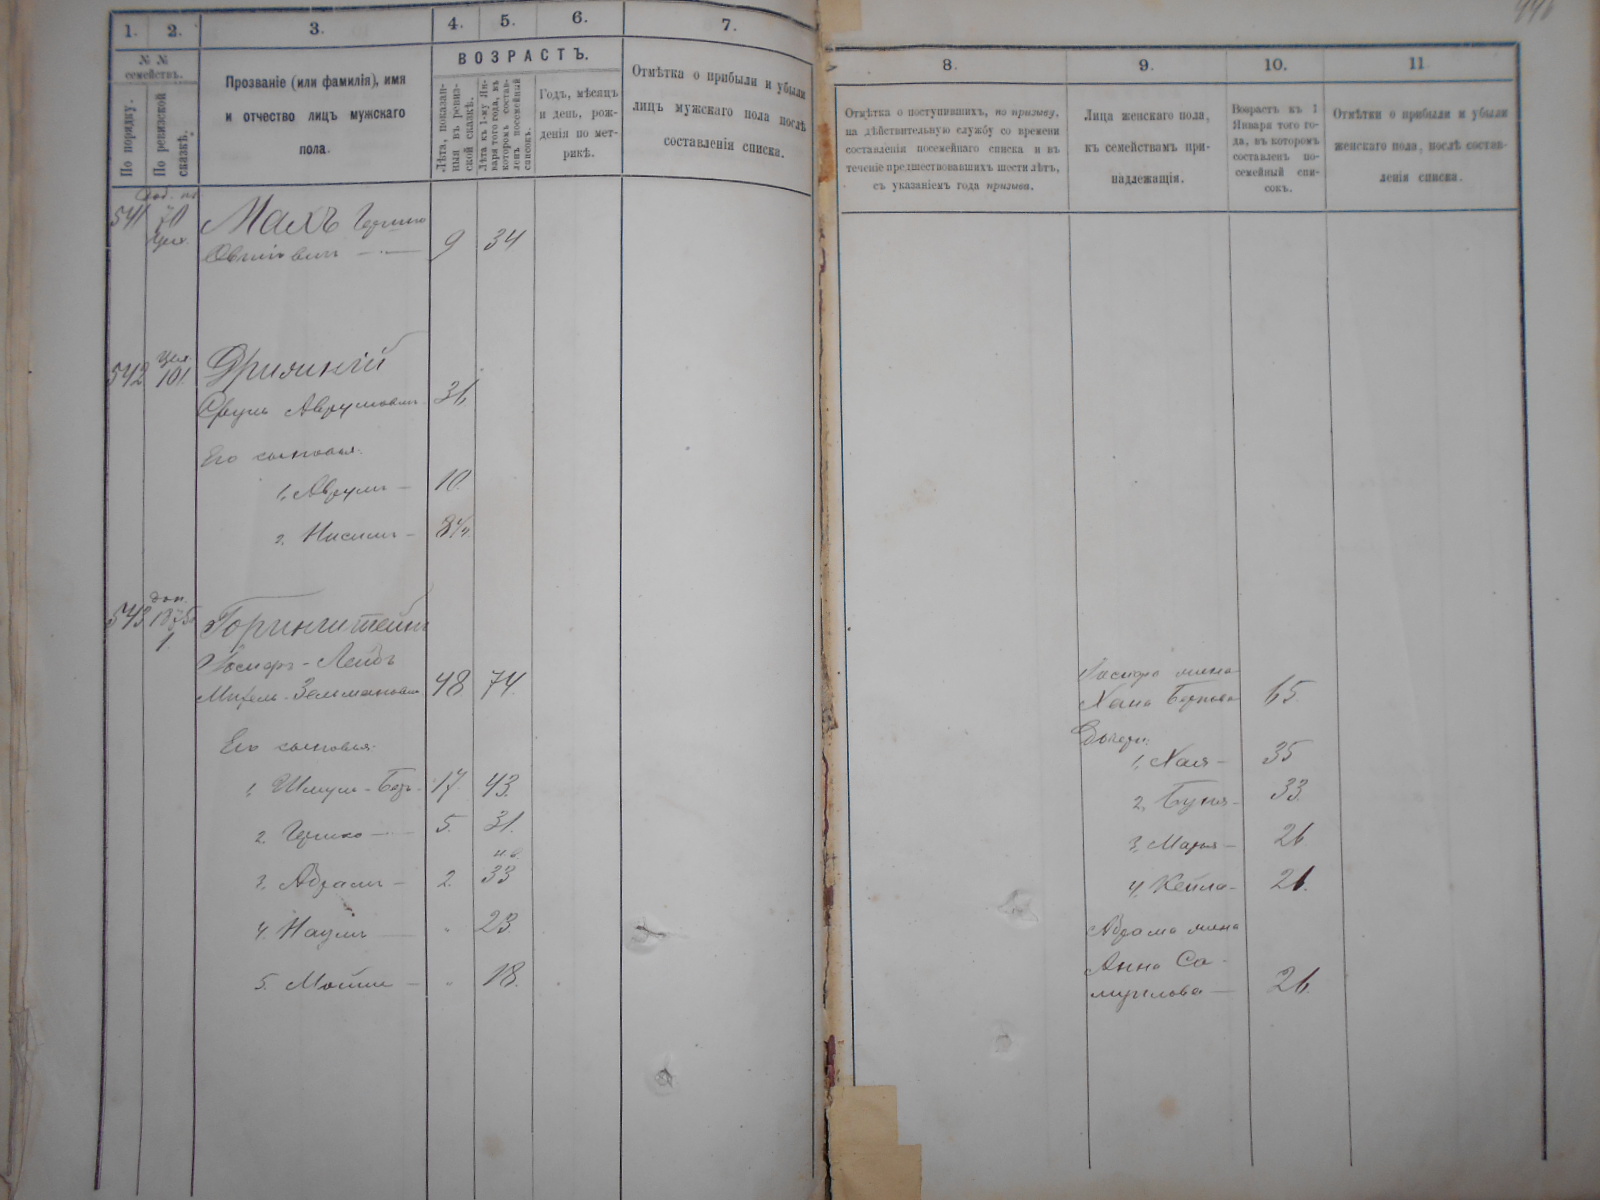 1.
2.
3.
4.
5.
6.
7.
№ №
семействъ.
По порядку.
По ревизской сказкѣ.
Прозваніе (или фамилія), имя
и отчество лицъ мужскаго
пола.
ВОЗРАСТЪ.
Лѣта, показанныя въ ревизской сказкѣ.
Лѣта къ 1-му Января того года, въ которомъ составленъ посемейный списокъ.
Годъ, мѣсяцъ
и день, рож-
денія по мет-
рикѣ.
Отмѣтка о прибыли и убыли
лицъ мужскаго пола послѣ
составленія списка.
541
70
Махъ Гершко
9 34
542 101
Срулъ Аврумовичъ 36
Его сыновья:
1. Аврумъ — 10.
2. Нисимъ —
доп.
543
1
Михель Зельмановичъ 48 74.
Его сыновья:
1. Шмуль-Беръ - 17 43.
2. Гершко — 5. 31.
3. Абрамъ — 2. 33
4. Наумъ — " 23
5. Мойше — " 18.
8.
9.
10.
11
Отмѣтка о поступившихъ, по призыву,
на дѣйствительную службу со времени
составленія посемейнаго списка и въ
теченіе предшествовавшихъ шести лѣтъ,
съ указаніемъ года призыва.
Лица женскаго пола,
къ семействамъ при-
надлежащія.
Возрастъ къ 1
Января того го-
да, въ которомъ
составленъ по-
семейный спи-
сокъ.
Отмѣтки о прибыли и убыли
женскаго пола, послѣ состав-
ленія списка.
жена
Хана Беркова 65.
Дочери:
1. Хая — 35
2. Буня — 33.
3. Марья — 26
4. Кейла — 26.
Абрама жена
Анна Са-
муилова — 26.